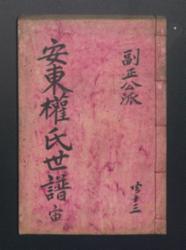 副正公派
安東權氏世譜
宙